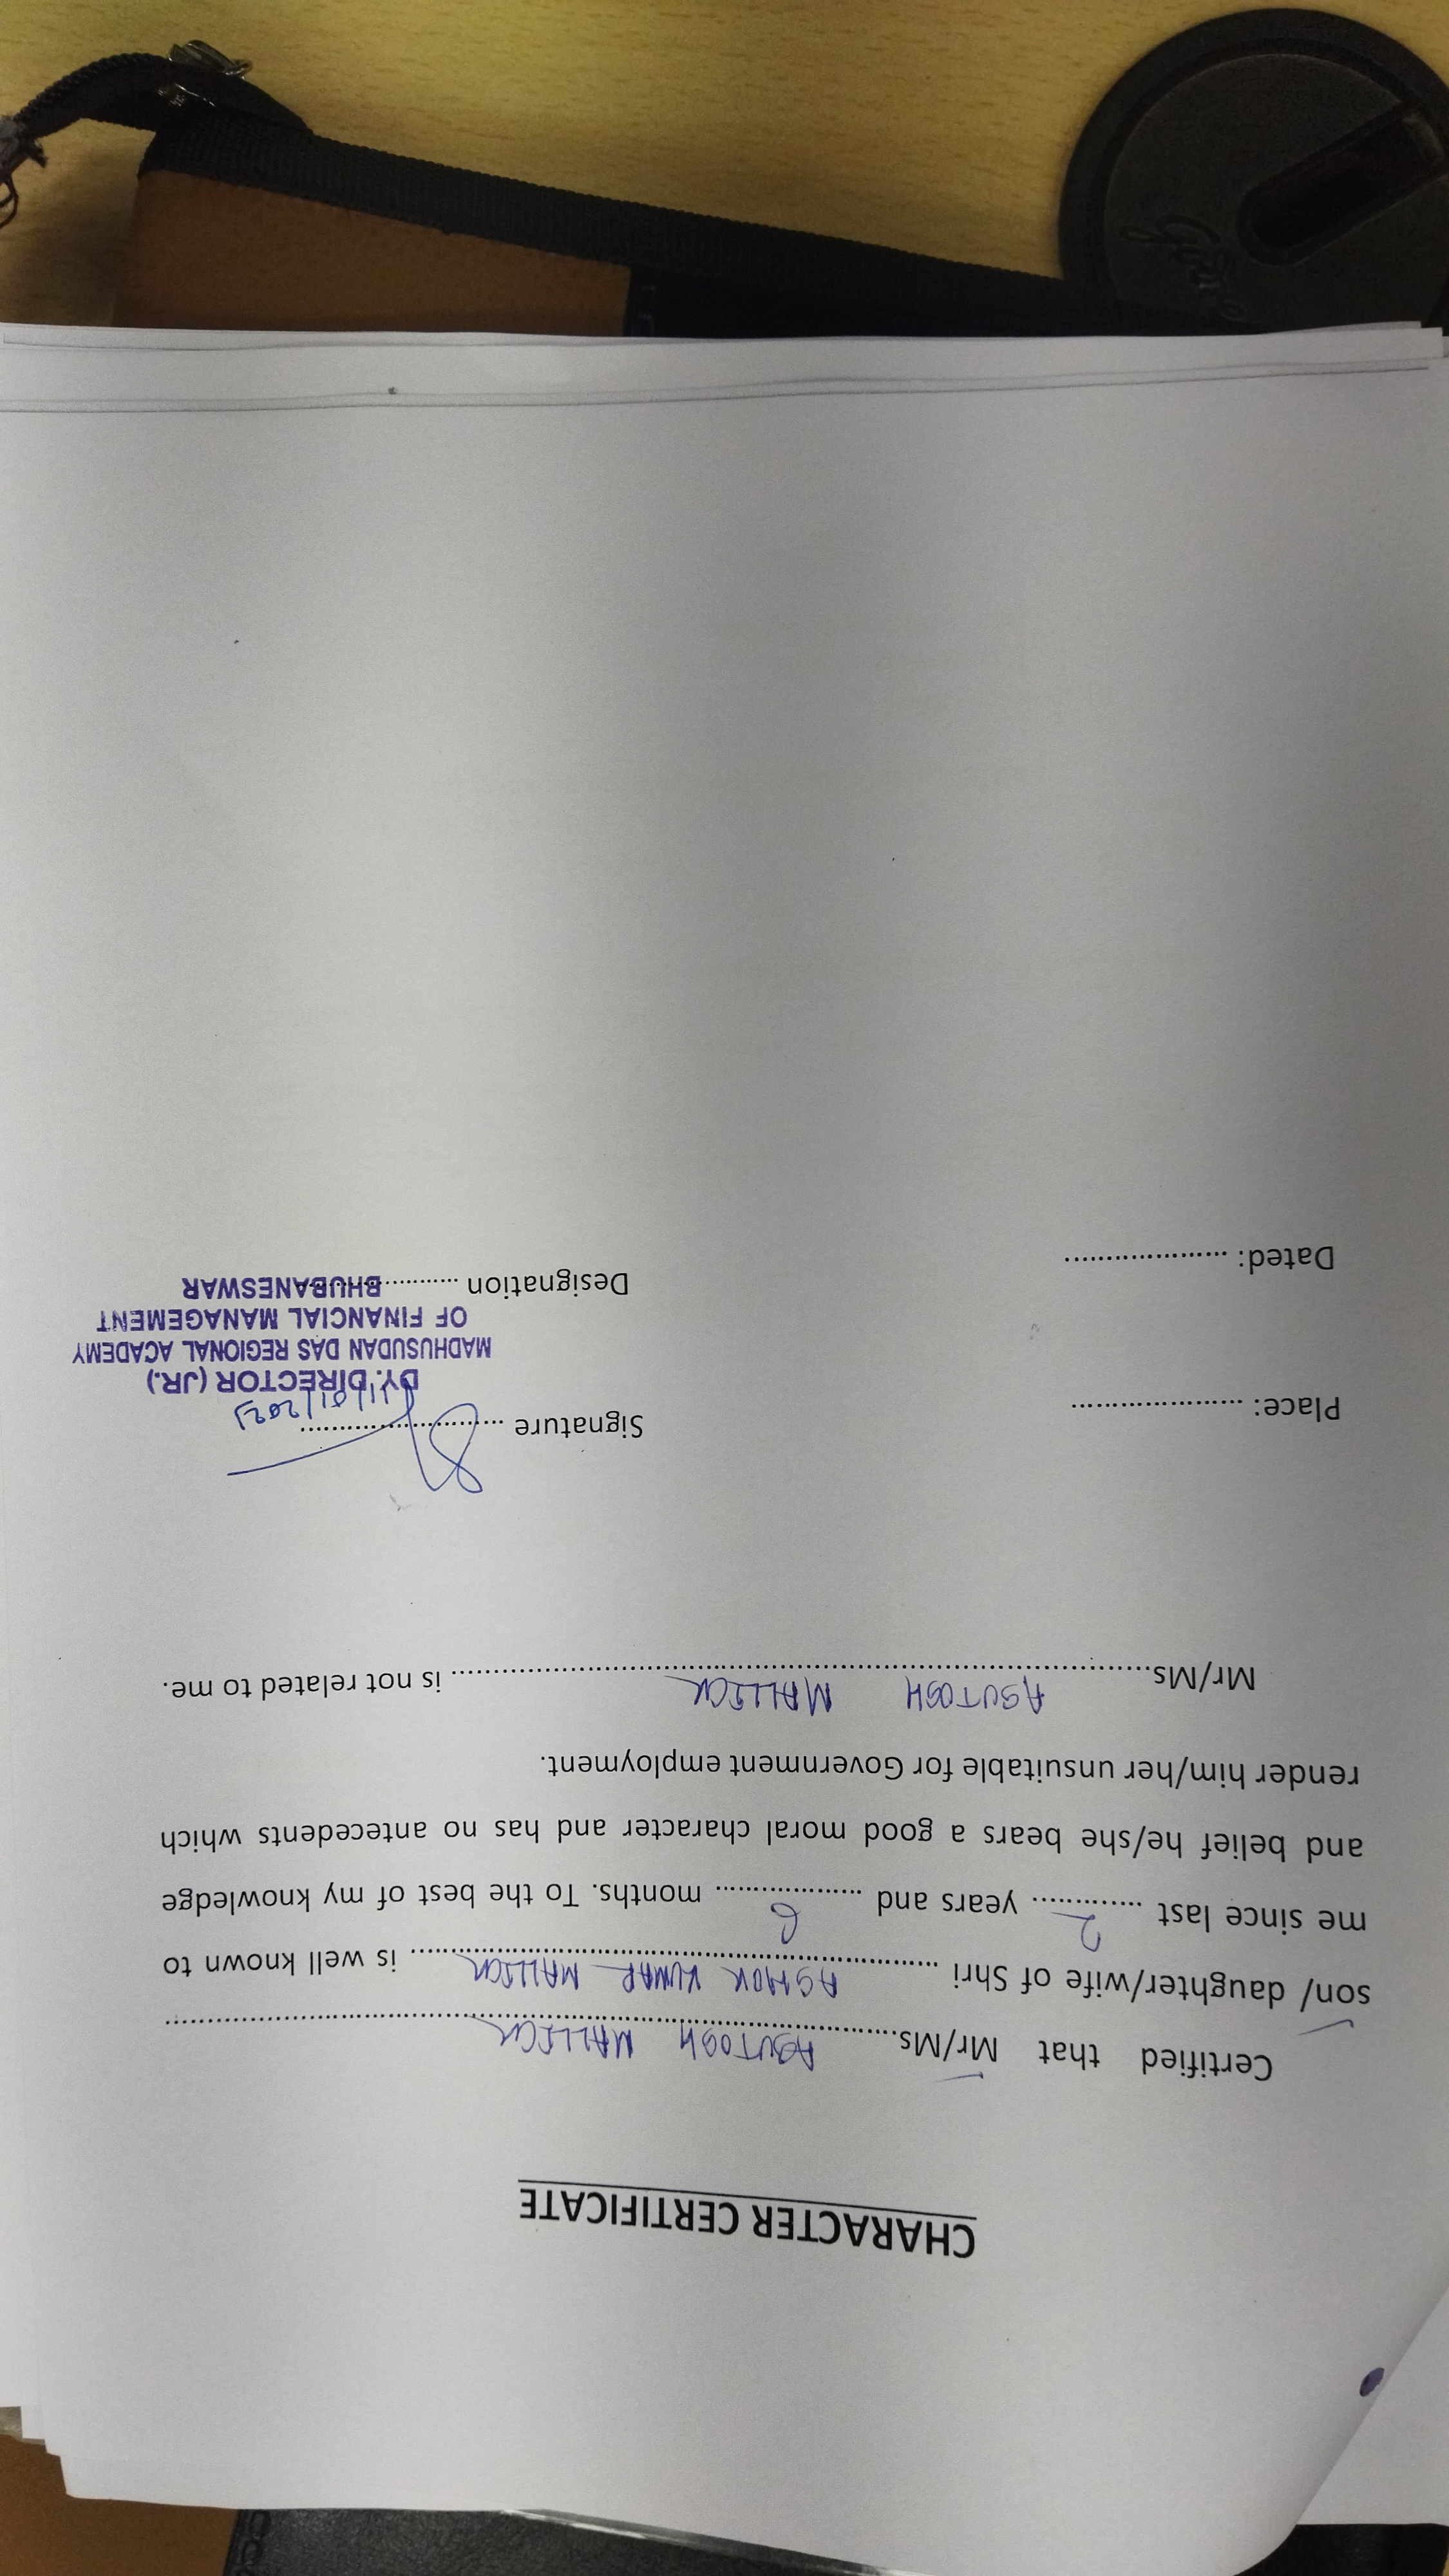 CHARACTER CERTIFICATE
Certified that Mr/Ms.......ASUTOSH MALLICK.......
son/ daughter/wife of Shri .......ASHOK KUMAR MALLICK....... is well known to
me since last ....2.... years and ....6.... months. To the best of my knowledge
and belief he/she bears a good moral character and has no antecedents which
render him/her unsuitable for Government employment.
Mr/Ms.......ASUTOSH MALLICK....... is not related to me.
Place: .....................
Signature ........................
11/01/2023
DY. DIRECTOR (JR.)
MADHUSUDAN DAS REGIONAL ACADEMY
OF FINANCIAL MANAGEMENT
BHUBANESWAR
Dated: ....................
Designation ....................